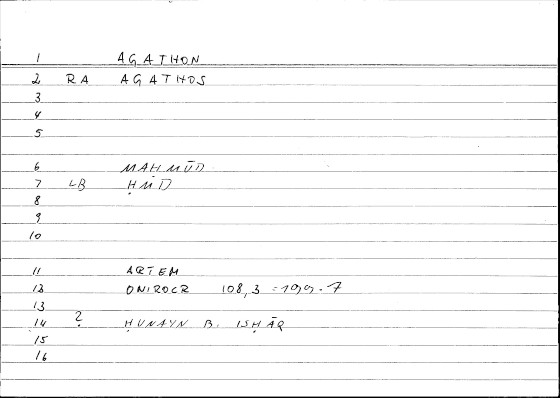 1 AGATHON
2 RA AGATHOS
3
4
5
6 MAḤMŪD
7 LB ḤMD
8
9
10
11 ARTEM
12 ONIROCR 108,3 = 199.7
13
14 ? ḤUNAYN B. ISḤĀQ
15
16